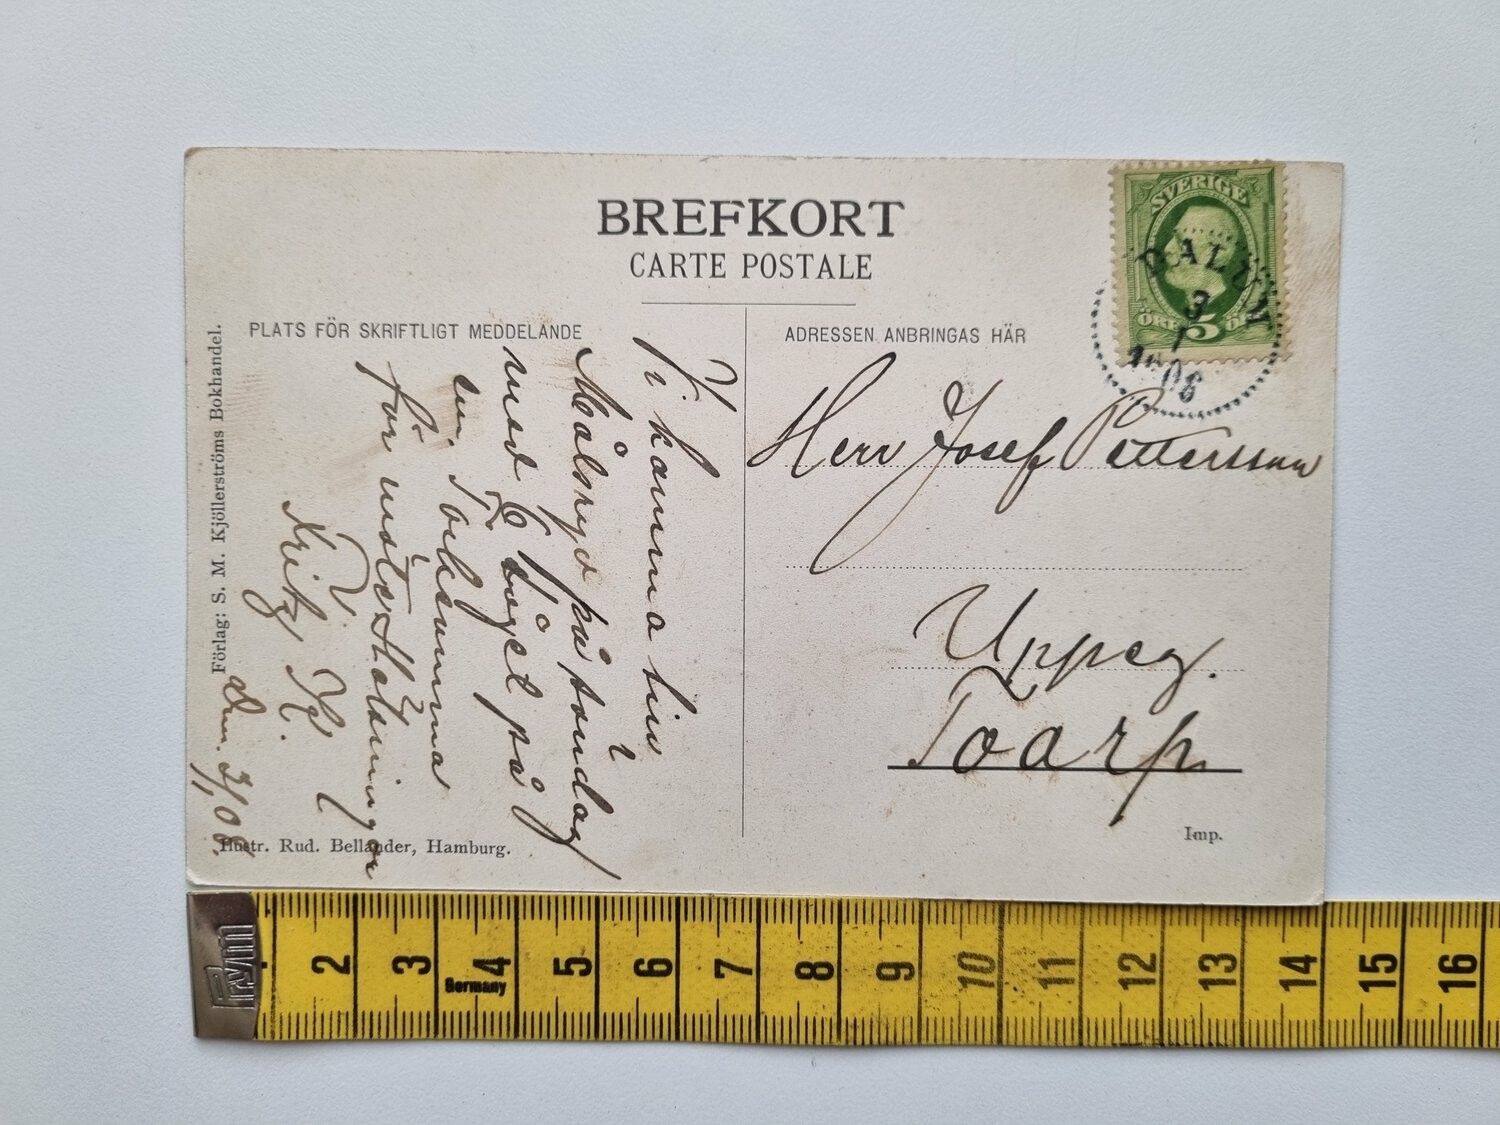 BREFKORT
CARTE POSTALE
PLATS FÖR SKRIFTLIGT MEDDELANDE
ADRESSEN ANBRINGAS HÄR
SVERIGE
ÖRE 5 ÖRE
DALUM
3
1
1906
Herr Josef Pettersson
Uppeg.
Toarp
Imp.
Vi komma till
Målsryd på söndag
med tåget på
em. Tacksamma
för möte. Hälsningar
Fritz K.
Dm. 3/1, 06.
Förlag: S. M. Kjöllerströms Bokhandel.
Illustr. Rud. Bellander, Hamburg.
Prym
Germany
2 3 4 5 6 7 8 9 10 11 12 13 14 15 16